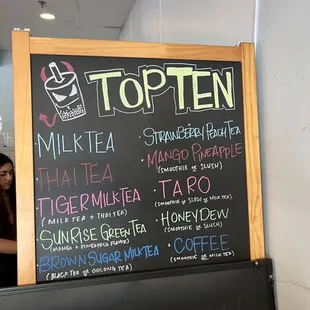 TOP TEN
MILK TEA
THAI TEA
TIGER MILK TEA
(MILK TEA + THAI TEA)
SUNRISE GREEN TEA
(MANGO + PINEAPPLE FLAVOR)
BROWN SUGAR MILK TEA
(BLACK TEA or OOLONG TEA)
STRAWBERRY PEACH TEA
MANGO PINEAPPLE
(SMOOTHIE or SLUSH)
TARO
(SMOOTHIE or SLUSH or MILK TEA)
HONEYDEW
(SMOOTHIE or SLUSH)
COFFEE
(SMOOTHIE or MILK TEA)